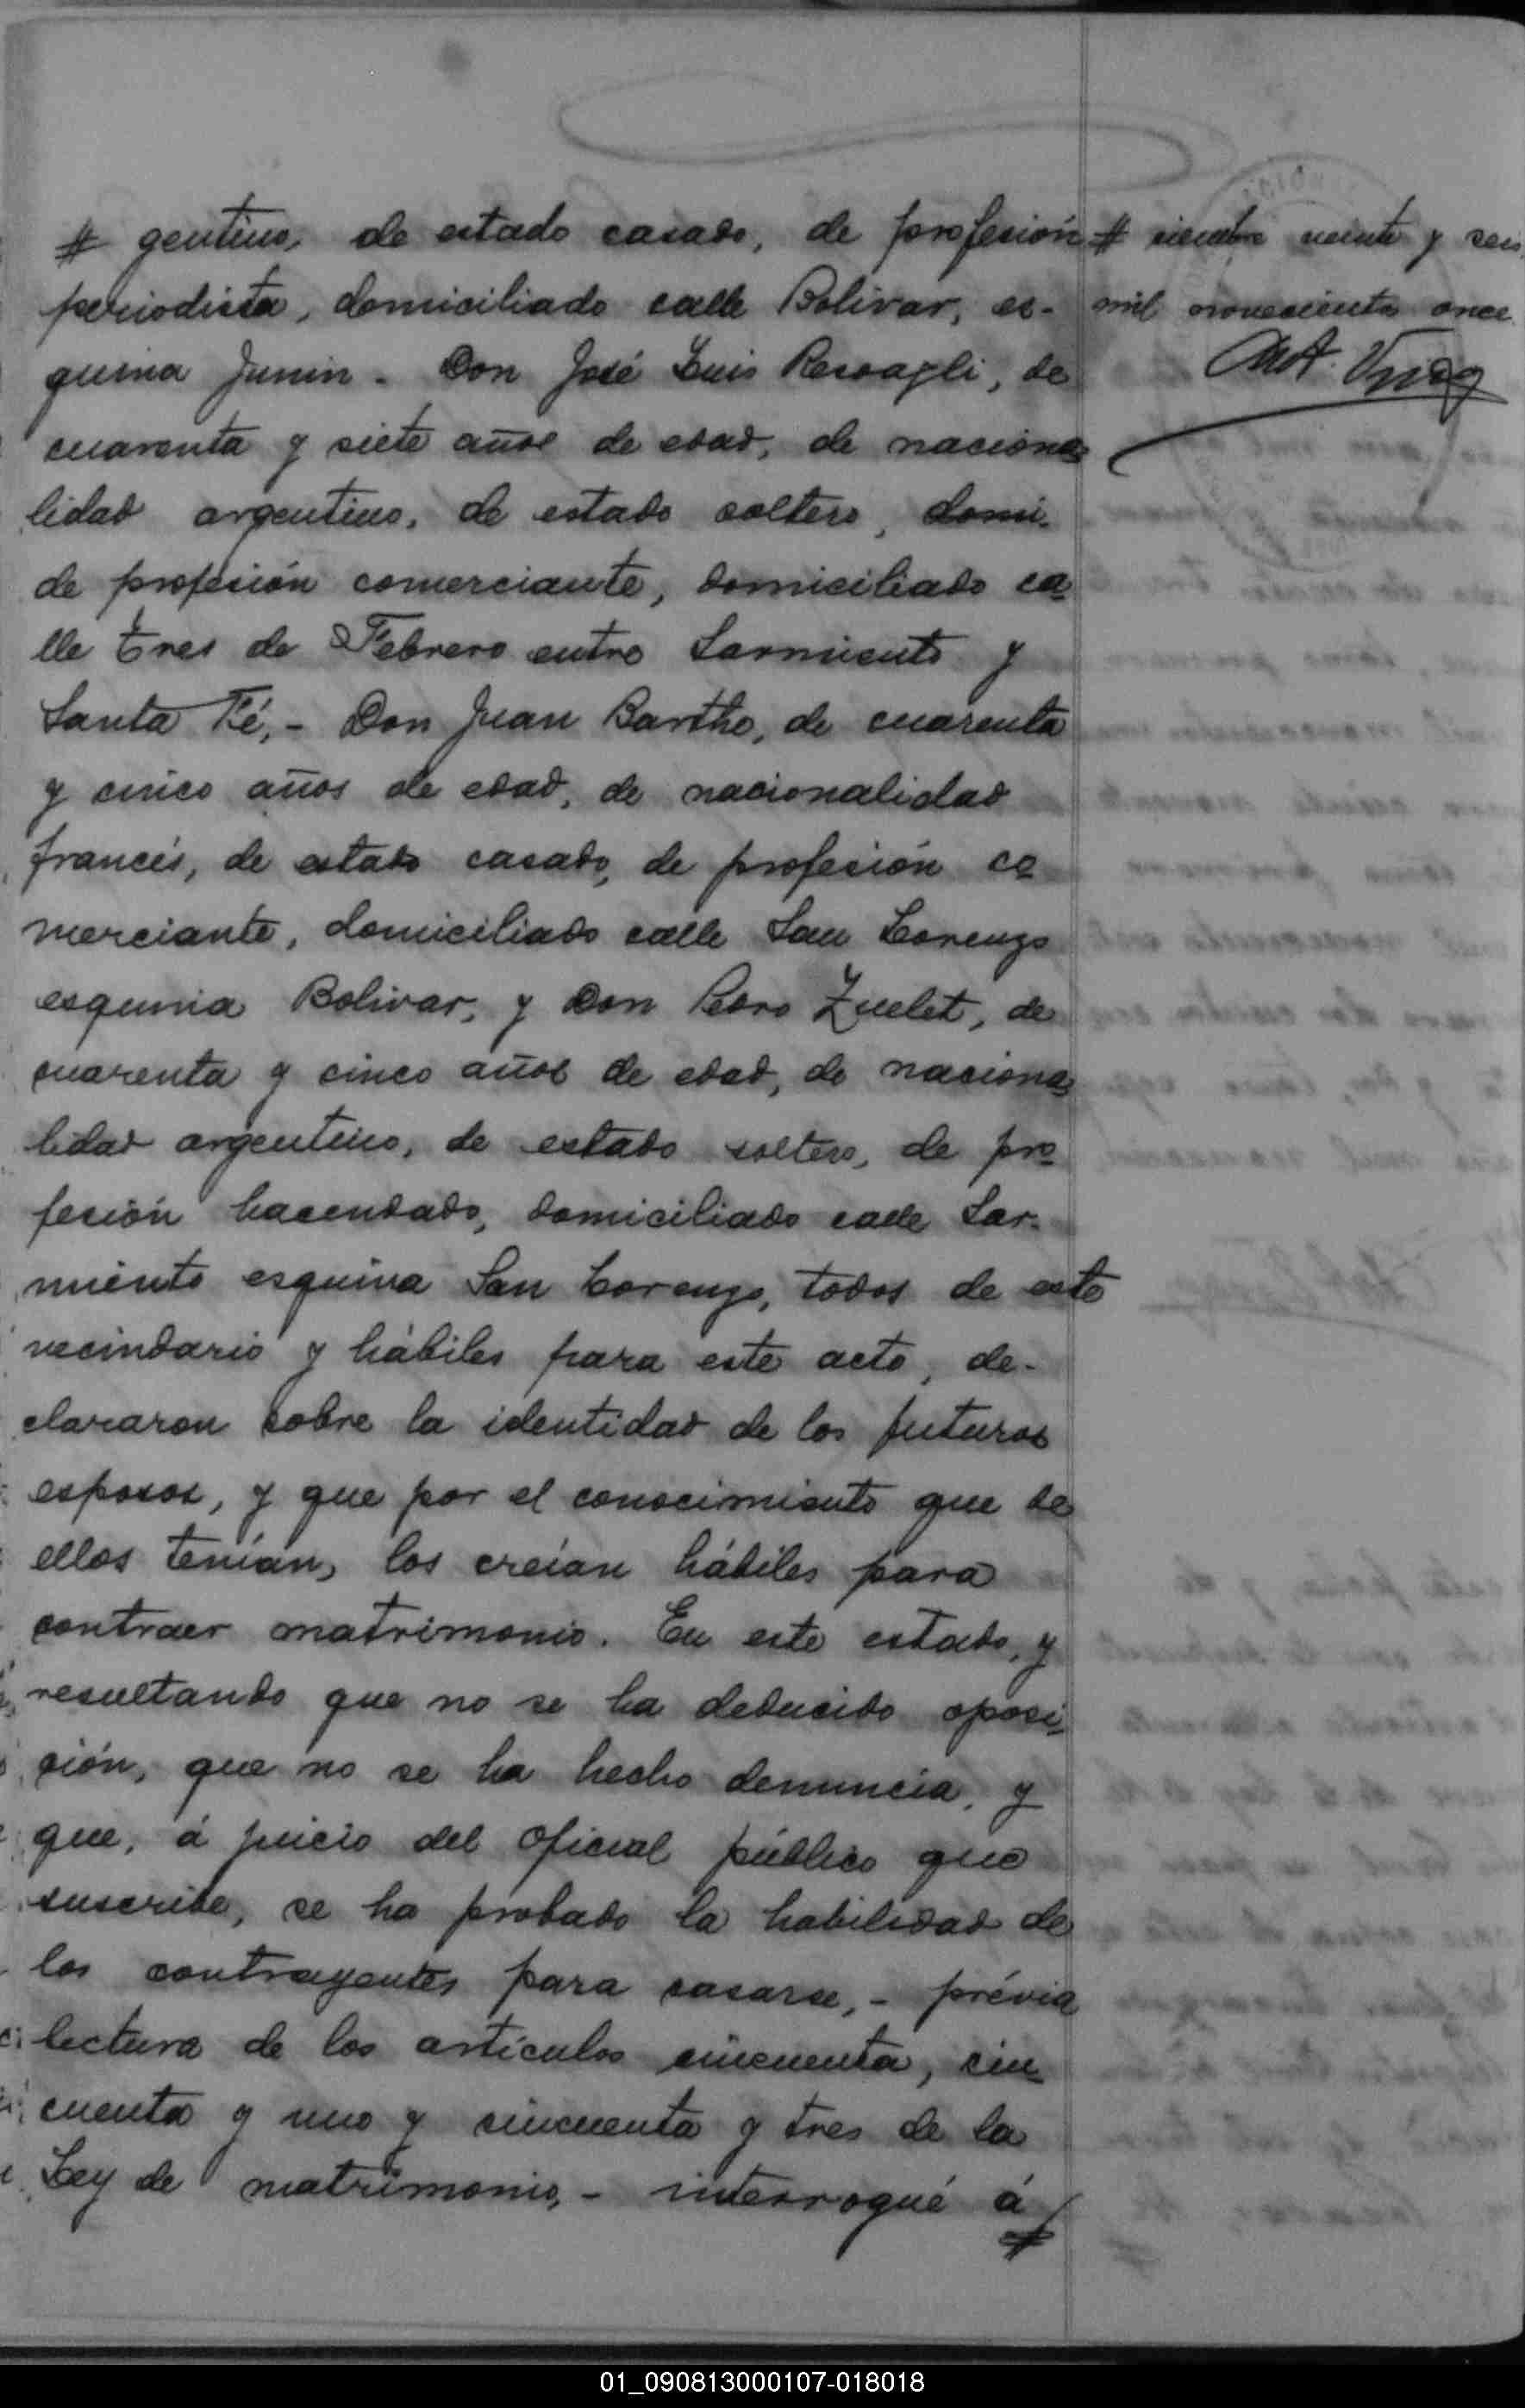 # gentino, de estado casado, de profesión
periodista, domiciliado calle Bolivar, es-
quina Junin - Don José Luis Resoagli, de
cuarenta y siete años de edad, de naciona
lidad argentino, de estado soltero, domi-
de profesión comerciante, domiciliado ca
lle tres de Febrero entre Sarmiento y
Santa Fé, - Don Juan Barthe, de cuarenta
y cinco años de edad, de nacionalidad
francés, de estado casado, de profesión co
merciante, domiciliado calle San Lorenzo
esquina Bolivar, y Don Pedro Zuelet, de
cuarenta y cinco años de edad, de naciona
lidad argentino, de estado soltero, de pro
fesión hacendado, domiciliado calle Sar-
miento esquina San Lorenzo, todos de este
vecindario y hábiles para este acto, de-
clararon sobre la identidad de los futuros
esposos, y que por el conocimiento que de
ellos tenían, los creían hábiles para
contraer matrimonio. En este estado, y
resultando que no se ha deducido oposi-
ción, que no se ha hecho denuncia, y
que, á juicio del oficial público que
suscribe, se ha probado la habilidad de
los contrayentes para casarse, - prévia
lectura de los artículos cincuenta, cin
cuenta y uno y cincuenta y tres de la
Ley de matrimonio, - interrogué á
#
# siembre veinte y seis
mil novecientos once
01_090813000107-018018